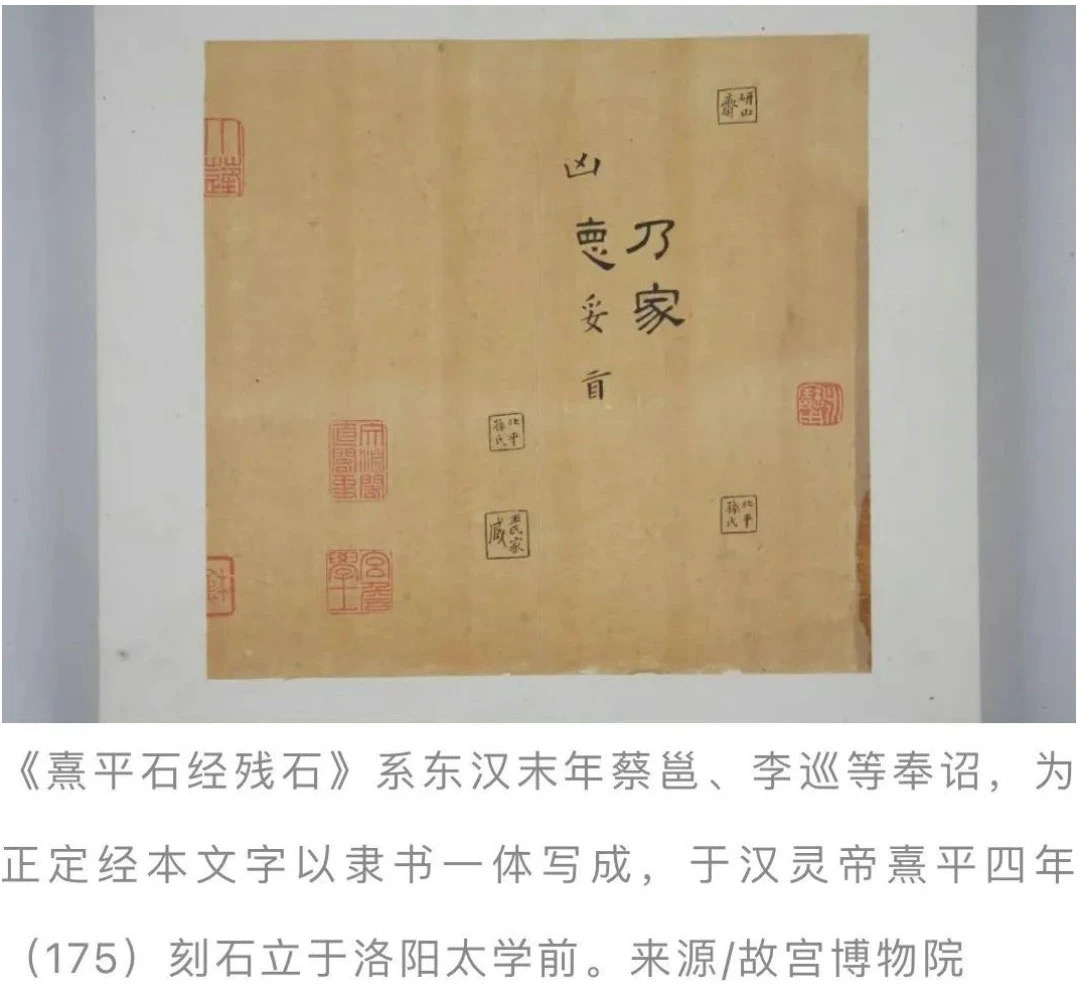 研山齋
乃家
凶悳妥𠄢
北平孫氏
北平孫氏
王氏家藏
文淵閣直閣事
宮詹學士
《熹平石经残石》系东汉末年蔡邕、李巡等奉诏，为
正定经本文字以隶书一体写成，于汉灵帝熹平四年
（175）刻石立于洛阳太学前。来源/故宫博物院